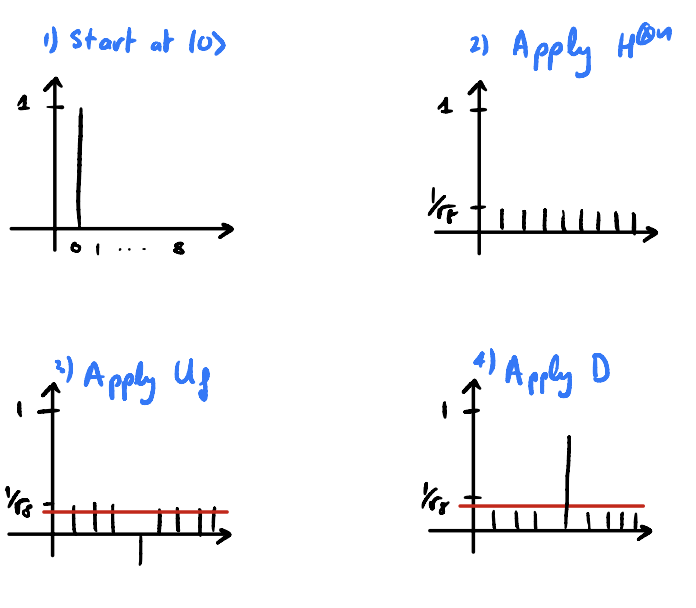 1) Start at |0>
1
0 1 ... 8
2) Apply H⊗n
1
1/√8
3) Apply Uf
1
1/√8
4) Apply D
1
1/√8